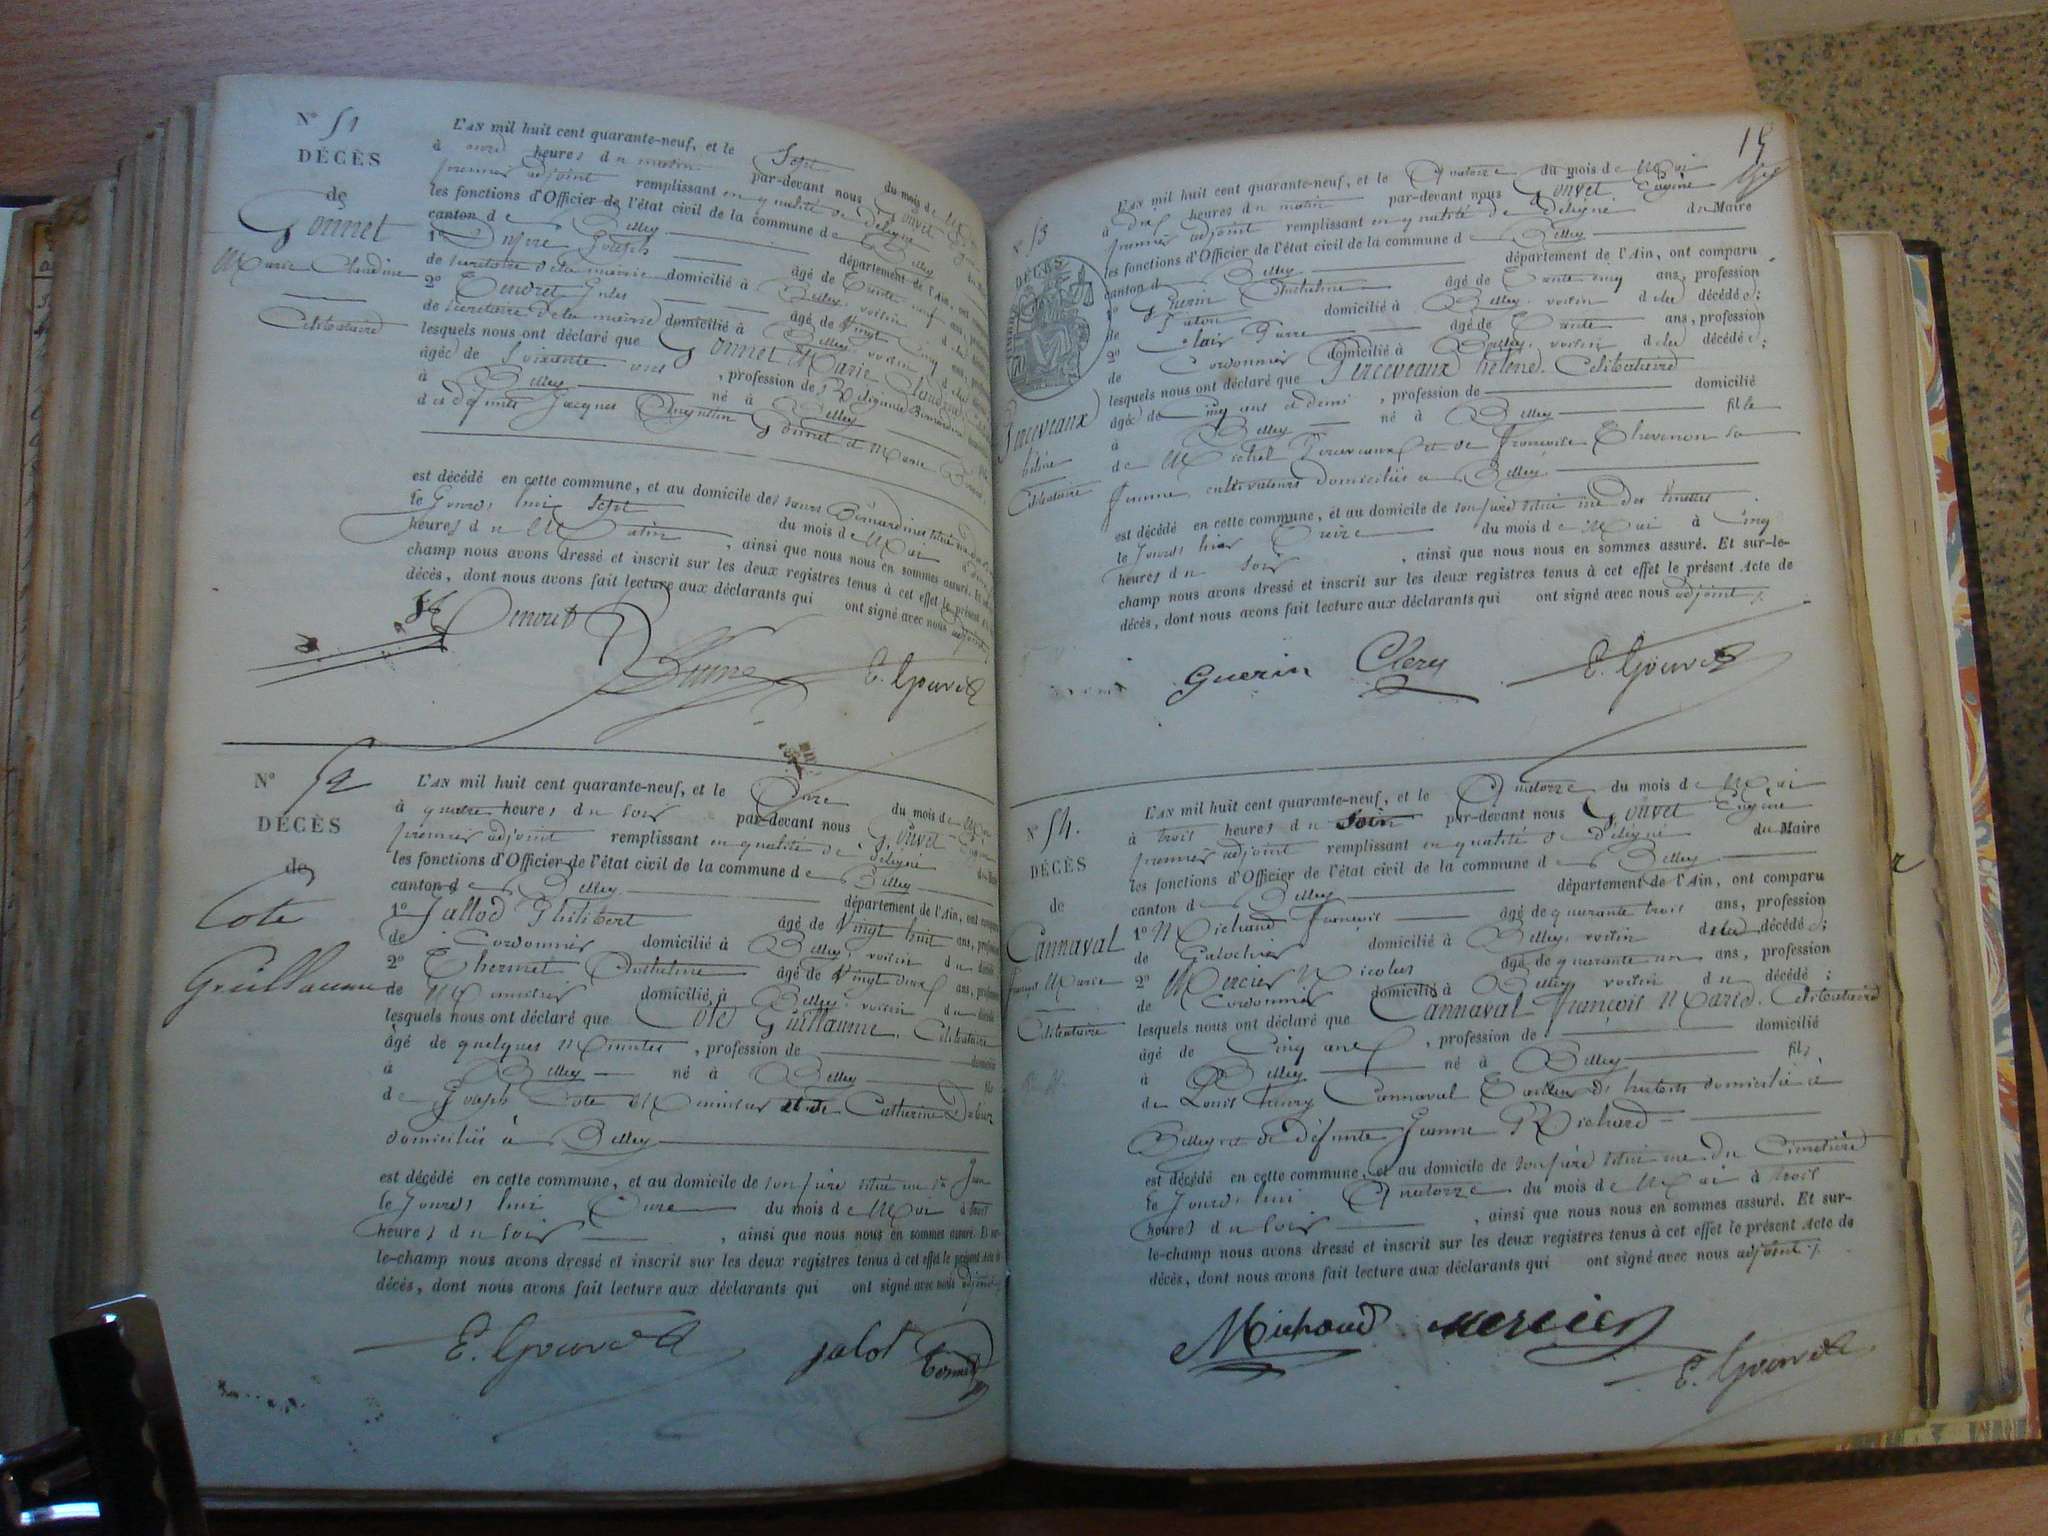 N° 51
DÉCÈS
de
Gonnet
Marie Claudine
Célibataire
L'AN mil huit cent quarante-neuf, et le Sept du mois de Mai
à onze heures du matin par-devant nous Gouvet
premier adjoint remplissant en qualité de délégué
les fonctions d'Officier de l'état civil de la commune de Belley
canton de Belley département de l'Ain, ont
1° Joseph âgé de Trente neuf ans,
de secrétaire de la mairie domicilié à Belley, voisin
2° Tendret Jules âgé de Vingt cinq ans,
de secrétaire de la mairie domicilié à Belley, voisin
lesquels nous ont déclaré que Gonnet Marie Claudine
âgée de Soixante ans, profession de Religieuse Bernardine
à Belley né à Belley
des défunts Jacques Augustin Gonnet et Marie
est décédé en cette commune, et au domicile des sœurs Bernardines
le Jourd'hui Sept du mois de Mai
heures du Matin, ainsi que nous nous en sommes assuré. Et
champ nous avons dressé et inscrit sur les deux registres tenus à cet effet le présent
décès, dont nous avons fait lecture aux déclarants qui ont signé avec nous adjoint
Tendret
E. Gouvet
N° 52
DÉCÈS
de
Cote
Guillaume
L'AN mil huit cent quarante-neuf, et le Onze du mois de Mai
à quatre heures du soir par-devant nous Gouvet
premier adjoint remplissant en qualité de délégué du Maire
les fonctions d'Officier de l'état civil de la commune de Belley
canton de Belley département de l'Ain, ont comparu
1° Jallod Philibert âgé de Vingt huit ans,
de Cordonnier domicilié à Belley, voisin du décédé
2° Thermet Anthelme âgé de Vingt deux ans,
de Menuisier domicilié à Belley, voisin du décédé
lesquels nous ont déclaré que Cote Guillaume, Célibataire
âgé de quelques Minutes, profession de domicilié
à Belley né à Belley fils
de Joseph Cote Menuisier et de Catherine
domiciliés à Belley
est décédé en cette commune, et au domicile de son père situé
le Jourd'hui Onze du mois de Mai à trois
heures du soir, ainsi que nous nous en sommes assuré. Et sur-
le-champ nous avons dressé et inscrit sur les deux registres tenus à cet effet le présent Acte de
décès, dont nous avons fait lecture aux déclarants qui ont signé avec nous adjoint
E. Gouvet jalod
15
N° 53
DÉCÈS
Perceveaux
hélène
Célibataire
L'AN mil huit cent quarante-neuf, et le Quatorze du mois de Mai
à dix heures du matin par-devant nous Gouvet Eugène
premier adjoint remplissant en qualité de délégué du Maire
les fonctions d'Officier de l'état civil de la commune de Belley
canton de Belley département de l'Ain, ont comparu
1° Guerin Anthelme âgé de Trente cinq ans, profession
de domicilié à Belley, voisin de la décédée;
2° Pierre âgé de Trente ans, profession
de Cordonnier domicilié à Belley, voisin de la décédée;
lesquels nous ont déclaré que Perceveaux hélène, Célibataire
âgée de Cinq ans et demi, profession de domicilié
à Belley né à Belley fille
de Michel Perceveaux et de Françoise Thevenon sa
femme cultivateurs domiciliés à Belley
est décédé en cette commune, et au domicile de son père situé rue des
le Jour d'hier Treize du mois de Mai à Cinq
heures du soir, ainsi que nous nous en sommes assuré. Et sur-le-
champ nous avons dressé et inscrit sur les deux registres tenus à cet effet le présent Acte de
décès, dont nous avons fait lecture aux déclarants qui ont signé avec nous adjoint
Guerin Clery E. Gouvet
N° 54.
DÉCÈS
de
Cannaval
françois Marie
Célibataire
L'AN mil huit cent quarante-neuf, et le Quatorze du mois de Mai
à trois heures du Soir par-devant nous Gouvet Eugène
premier adjoint remplissant en qualité de délégué du Maire
les fonctions d'Officier de l'état civil de la commune de Belley
canton de Belley département de l'Ain, ont comparu
1° Michaud françois âgé de quarante trois ans, profession
de Galochier domicilié à Belley, voisin du décédé;
2° Mercier Nicolas âgé de quarante un ans, profession
de Cordonnier domicilié à Belley voisin du décédé;
lesquels nous ont déclaré que Cannaval françois Marie, Célibataire
âgé de Cinq ans, profession de domicilié
à Belley né à Belley fils
de Louis Cannaval domicilié à
Belley et de défunte Jeanne Richard
est décédé en cette commune, et au domicile de son père situé rue du Cimetière
le Jourd'hui Quatorze du mois de Mai à trois
heures du soir, ainsi que nous nous en sommes assuré. Et sur-
le-champ nous avons dressé et inscrit sur les deux registres tenus à cet effet le présent Acte de
décès, dont nous avons fait lecture aux déclarants qui ont signé avec nous adjoint
Michaud Mercier
E. Gouvet